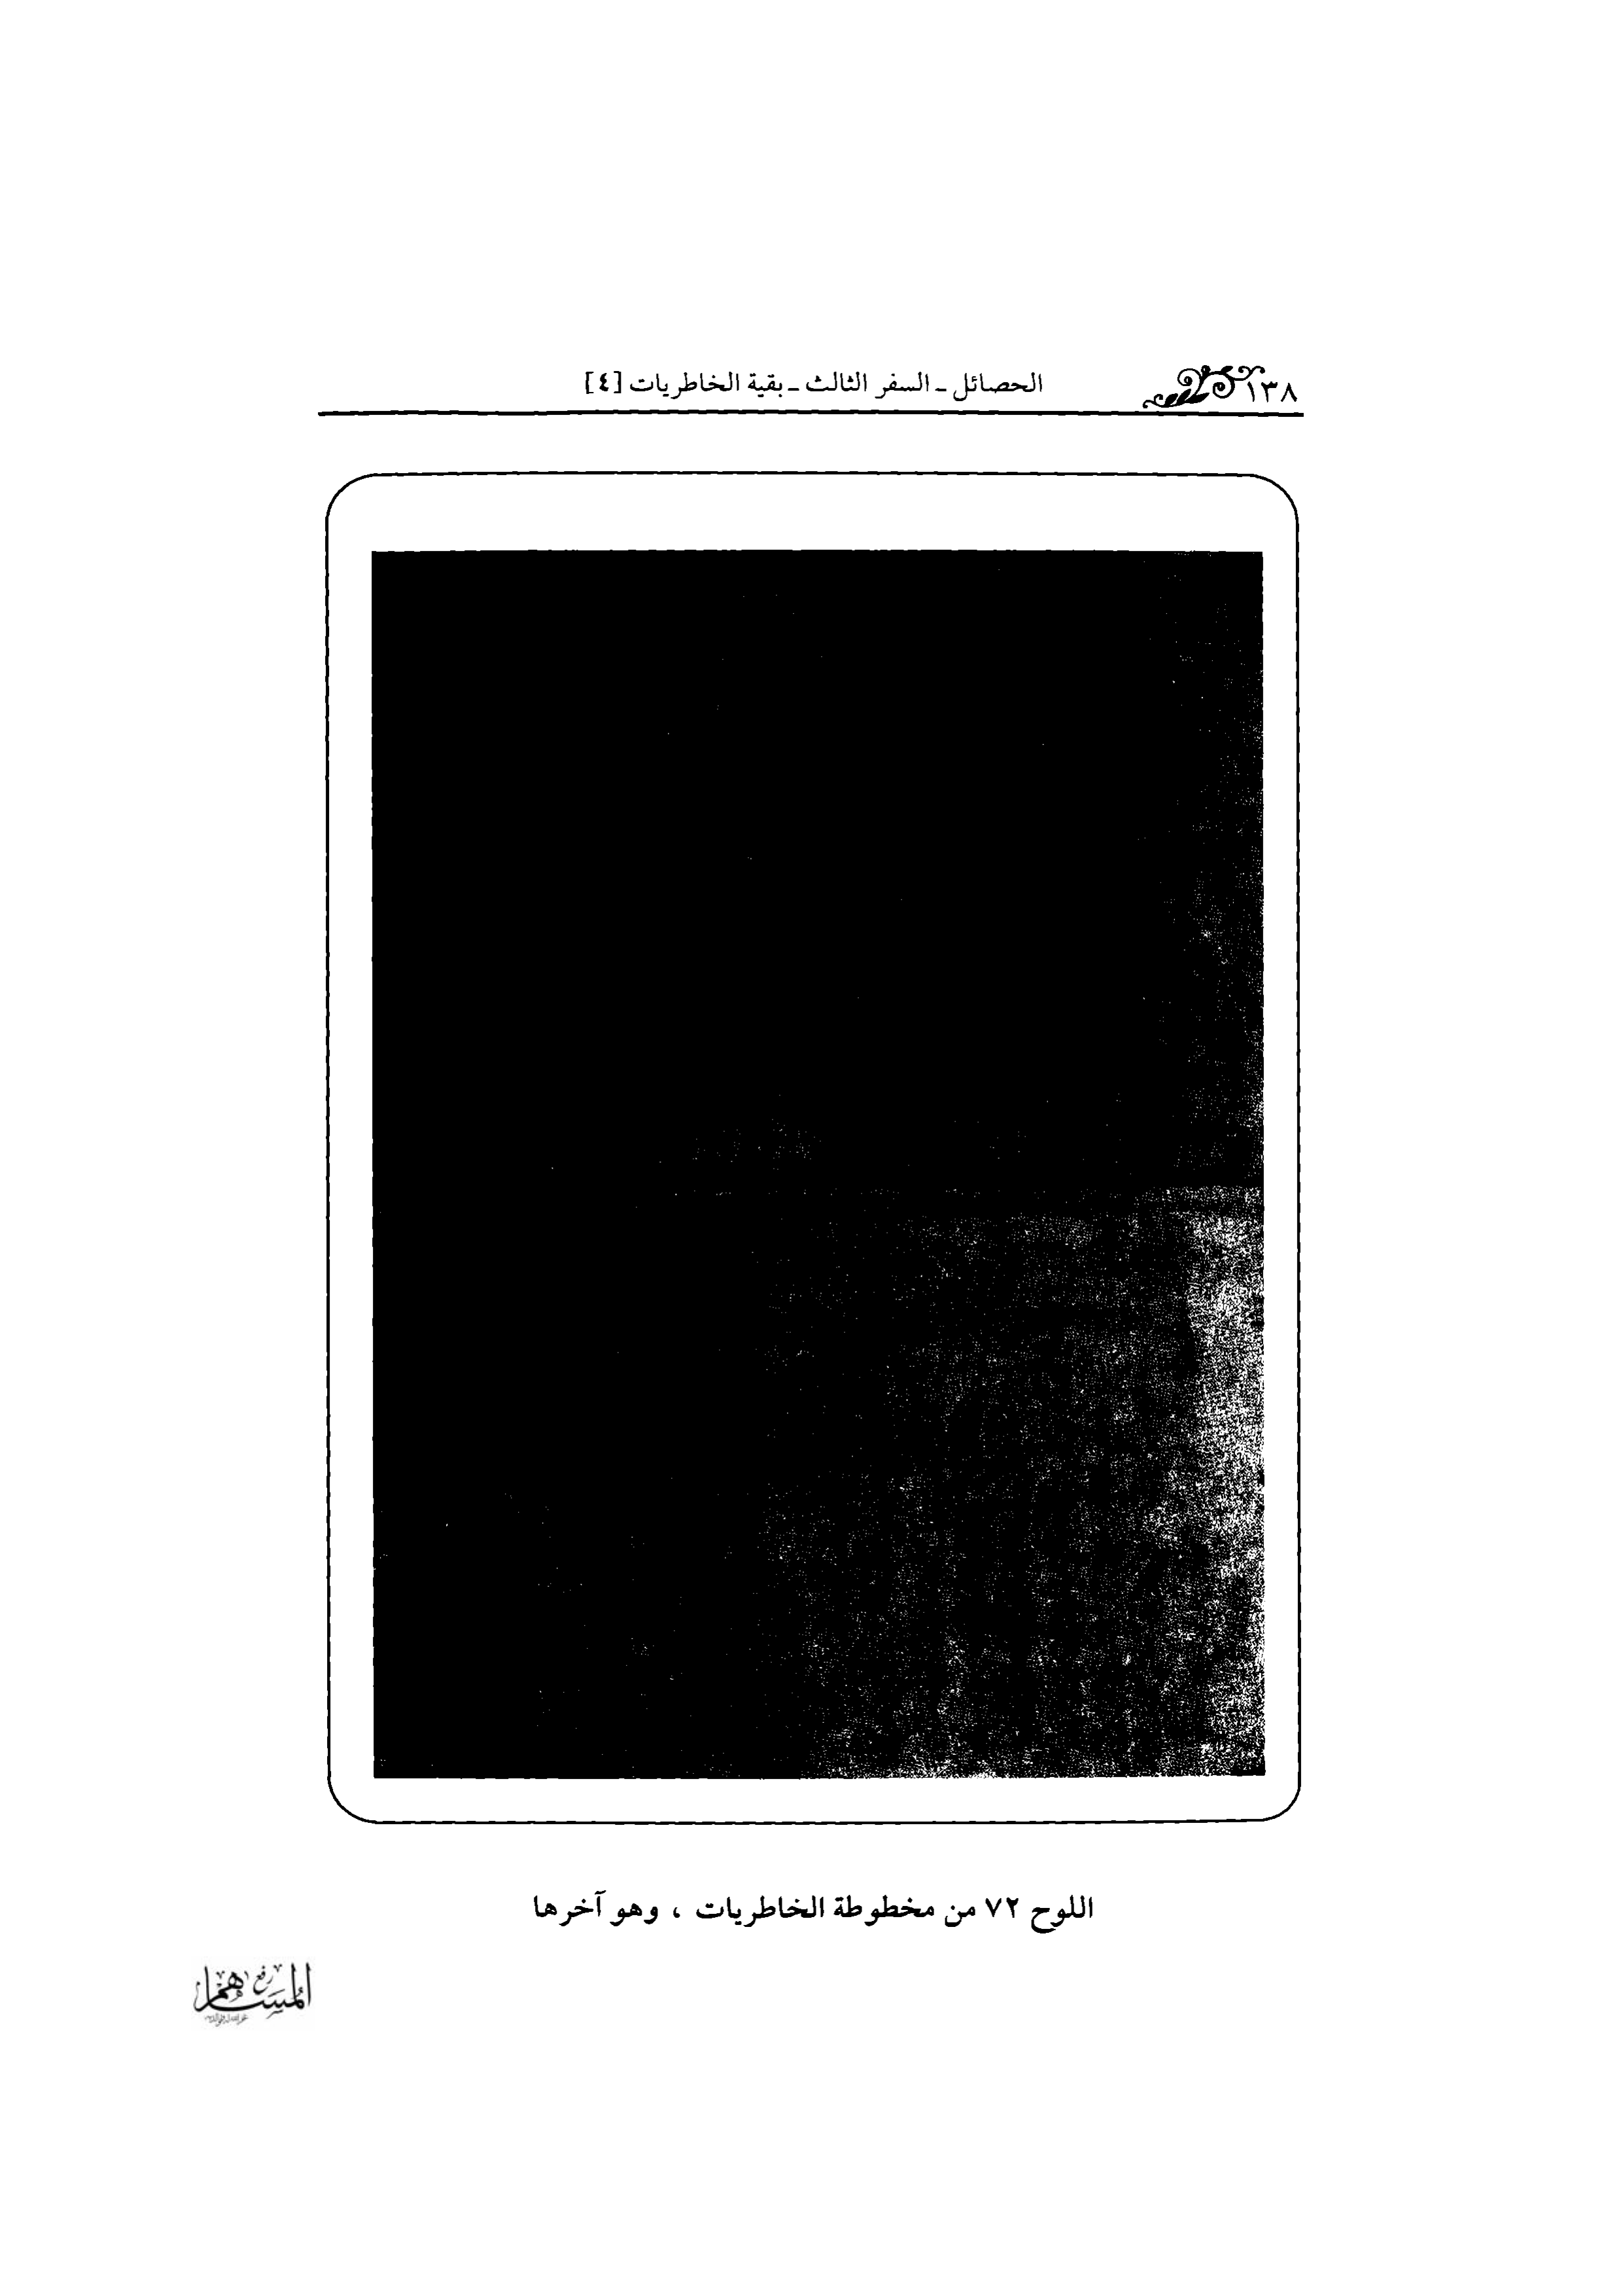 ١٣٨
الحصائل ـ السفر الثالث ـ بقية الخاطريات [٤]
اللوح ٧٢ من مخطوطة الخاطريات ، وهو آخرها
رفع
المساهم